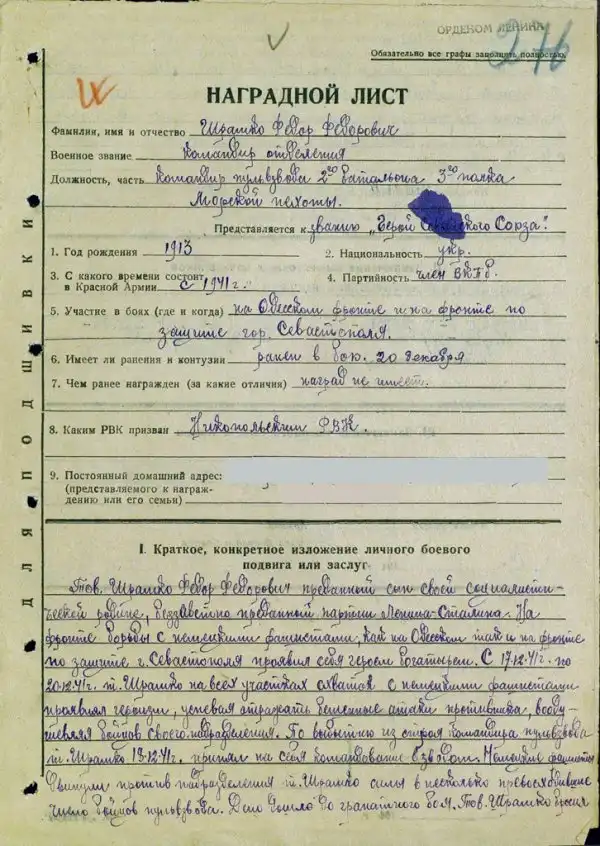 ОРДЕНОМ ЛЕНИНА
276
Обязательно все графы заполнить полностью.
НАГРАДНОЙ ЛИСТ
Фамилия, имя и отчество Шрамко Федор Федорович
Военное звание командир отделения
Должность, часть Командир пульвзвода 2го батальона 3го полка
Морской пехоты.
Представляется к званию „Герой Советского Союза".
1. Год рождения 1913 2. Национальность укр.
3. С какого времени состоит
в Красной Армии с 1941 г. 4. Партийность член ВКПб.
5. Участие в боях (где и когда) на Одесском фронте и на фронте по
защите гор. Севастополя.
6. Имеет ли ранения и контузии ранен в бою. 20 декабря
7. Чем ранее награжден (за какие отличия) наград не имеет.
8. Каким РВК призван Никопольским РВК.
9. Постоянный домашний адрес:
(представляемого к награж-
дению или его семьи)
ДЛЯ ПОДШИВКИ
I. Краткое, конкретное изложение личного боевого
подвига или заслуг
Тов. Шрамко Федор Федорович преданный сын своей социалисти-
ческой родине, беззаветно преданной партии Ленина-Сталина. На
фронте борьбы с немецкими фашистами, как на Одесском так и на фронте
по защите г. Севастополя проявил себя героем богатырем. С 17.12.41г. по
20.12.41г. т. Шрамко на всех участках охватов с немецкими фашистами
проявлял героизм, успевая отражать бешенные атаки противника, вооду-
шевляя бойцов своего подразделения. По выбытию из строя командира пульвзвода
т. Шрамко 19.12.41г. принял на себя командование взводом. Немецкие фашисты
двинули против подразделения т. Шрамко силы в несколько превосходившие
число бойцов пульвзвода. Дело дошло до гранатного боя. Тов. Шрамко бросил